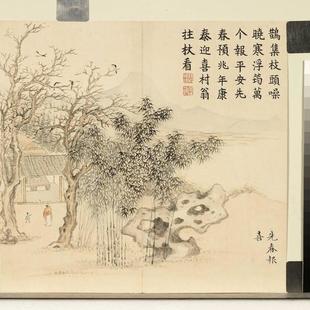 鵲集枝頭噪
曉寒浮筠萬
个報平安先
春預兆年康
泰迎喜村翁
拄杖看
先春報
喜